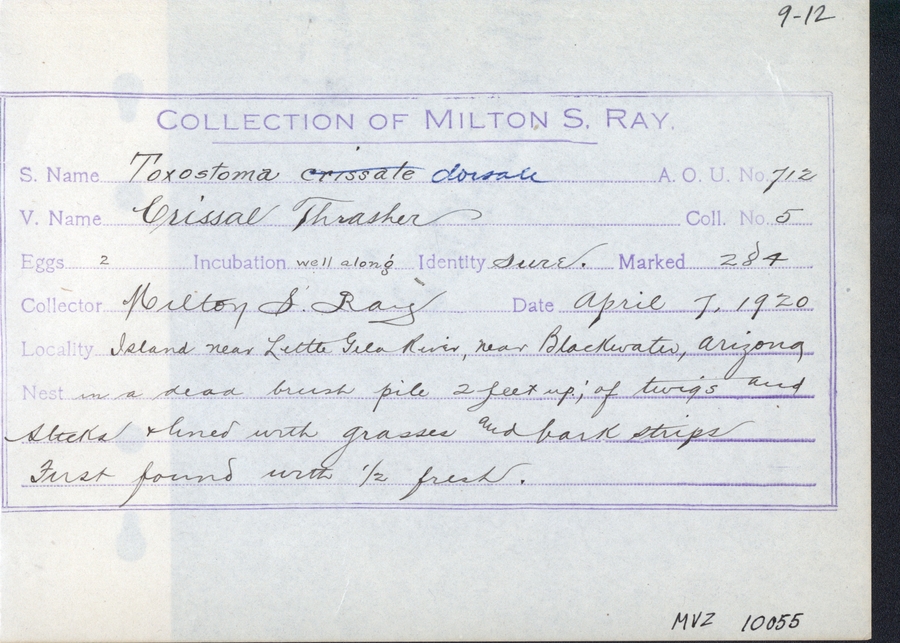 9-12
COLLECTION OF MILTON S. RAY.
S. Name Toxostoma crissale dorsale A. O. U. No. 712
V. Name Crissal Thrasher Coll. No. 5
Eggs 2 Incubation well along Identity sure. Marked 284
Collector Milton S. Ray Date April 7, 1920
Locality Island near Little Gila River, near Blackwater, Arizona
Nest in a dead brush pile 2 feet up; of twigs and
sticks & lined with grasses and bark strips
First found with 1/2 fresh.
MVZ 10055